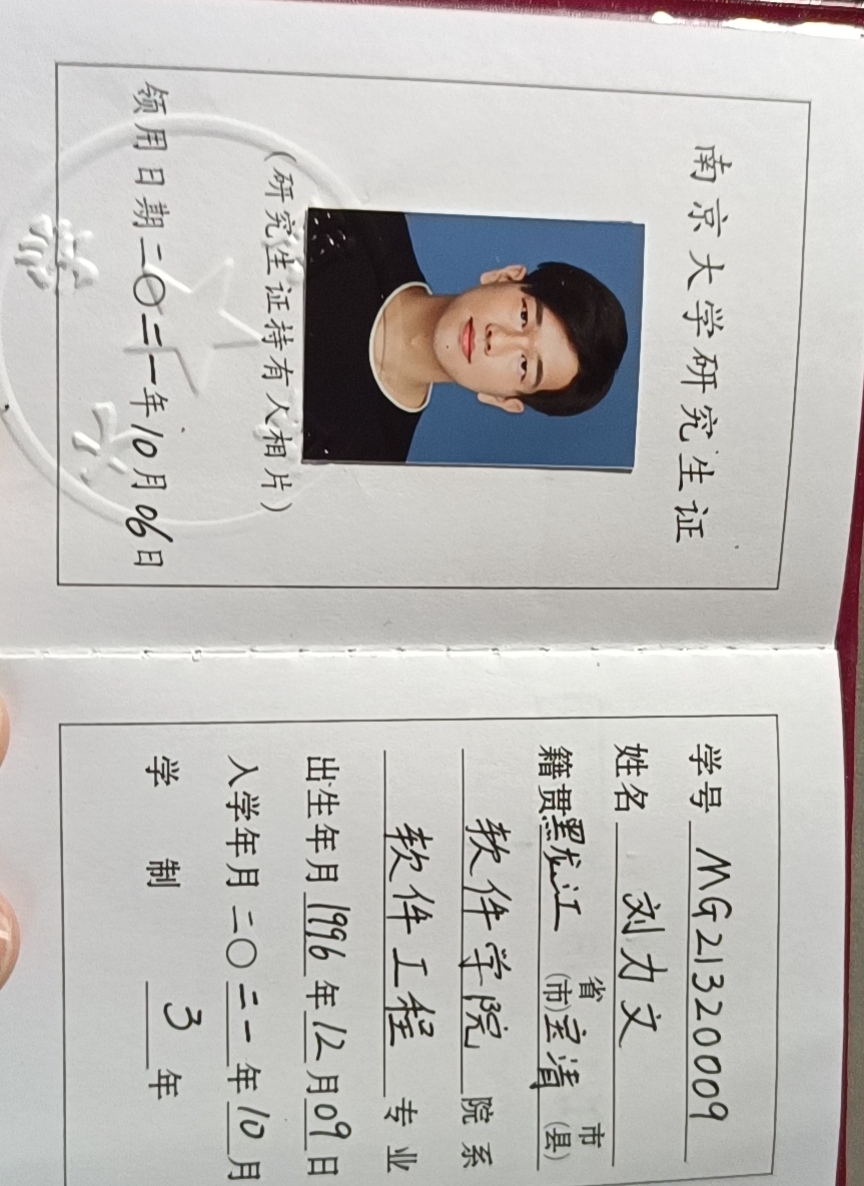 南京大学研究生证
(研究生证持有人相片)
领用日期二〇二一年10月06日
学号 MG21320009
姓名 刘力文
籍贯 黑龙江 省(市) 宝清 市(县)
软件学院 院系
软件工程 专业
出生年月 1996 年 12 月 09 日
入学年月 二〇二一年 10 月
学 制 3 年